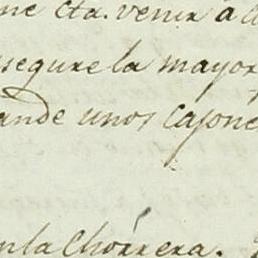 me cta. venir a
segure la mayor
ande unos cajone
en la Chorrera.